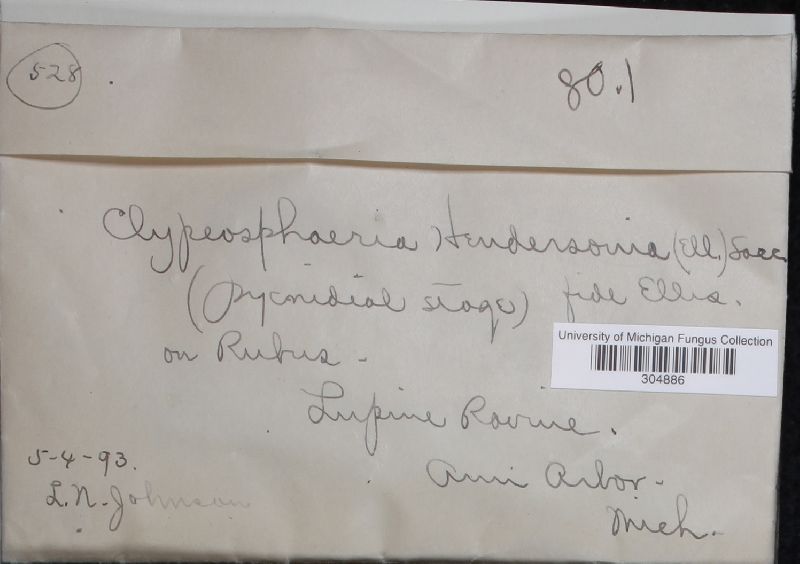 528 . 80.1
Clypeosphaeria Hendersonia (Ell.) Sacc.
(pycnidial stage) fide Ellis.
on Rubus -
University of Michigan Fungus Collection
304886
Lupine Ravine.
5-4-93. Ann Arbor -
L.N. Johnson Mich.